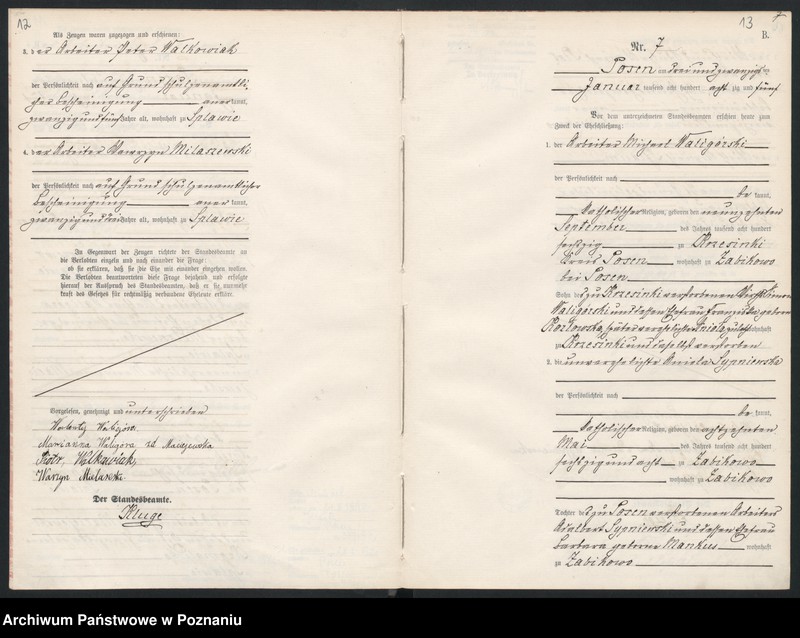 12
Als Zeugen waren zugezogen und erschienen:
3. der Arbeiter Peter Walkowiak
der Persönlichkeit nach auf Grund schulzenamtli-
cher Bescheinigung anerkannt,
zwanzigundfünf Jahre alt, wohnhaft zu Splawie
4. der Arbeiter Wawrzyn Milaszewski
der Persönlichkeit nach auf Grund schulzenamtlicher
Bescheinigung anerkannt,
zwanzigunddrei Jahre alt, wohnhaft zu Splawie
In Gegenwart der Zeugen richtete der Standesbeamte an
die Verlobten einzeln und nach einander die Frage:
ob sie erklären, daß sie die Ehe mit einander eingehen wollen.
Die Verlobten beantworteten diese Frage bejahend und erfolgte
hierauf der Ausspruch des Standesbeamten, daß er sie nunmehr
kraft des Gesetzes für rechtmäßig verbundene Eheleute erkläre.
Vorgelesen, genehmigt und unterschrieben
Marianna Waligora
Piotr Walkowiak
Der Standesbeamte.
Kluge
13
7
B.
Nr. 7
Posen am drei und zwanzigsten
Januar tausend acht hundert achtzig und fünf
Vor dem unterzeichneten Standesbeamten erschien heute zum
Zweck der Eheschließung:
1. der Arbeiter Michael Waligórski
der Persönlichkeit nach
bekannt,
katholischer Religion, geboren den neunzehnten
September des Jahres tausend acht hundert
sechzig zu Krzesinki
Kreis Posen wohnhaft zu Zabikowo
bei Posen
Sohn des zu Krzesinki verstorbenen Wirth Simon
Waligórski und dessen Ehefrau Franziska geborene
Kozlowska, später verehelichte zuletzt wohnhaft
zu Krzesinki und daselbst verstorben
2. die unverehelichte Aniela Sypniewska
der Persönlichkeit nach
bekannt,
katholischer Religion, geboren den achtzehnten
Mai des Jahres tausend acht hundert
sechzigundacht zu Zabikowo
wohnhaft zu Zabikowo
Tochter des zu Posen verstorbenen Arbeiters
Adalbert Sypniewski und dessen Ehefrau
Barbara geborene Mankus wohnhaft
zu Zabikowo
Archiwum Państwowe w Poznaniu